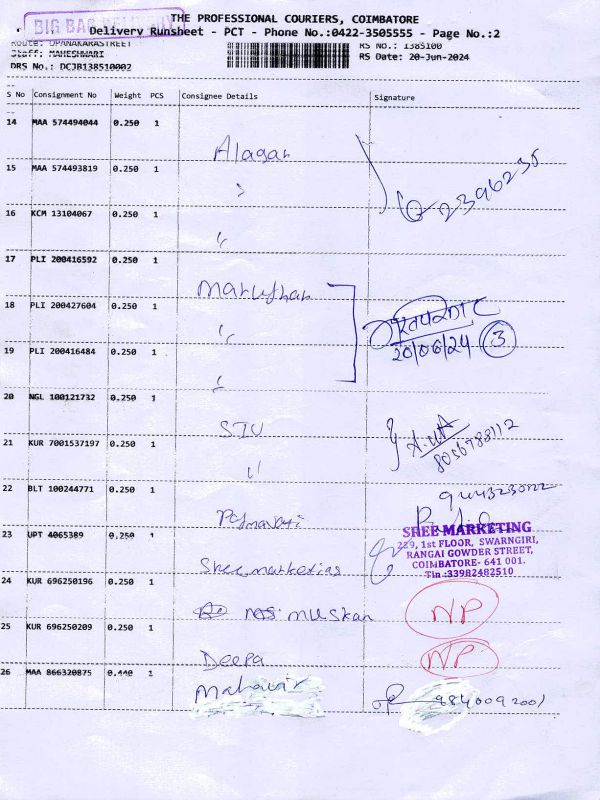 BIG BAG DELIVERY
THE PROFESSIONAL COURIERS, COIMBATORE
Delivery Runsheet - PCT - Phone No.:0422-3505555 - Page No.:2
Route: OPANAKARASTREET
RS No.: 1385100
Staff: MAHESHWARI
RS Date: 20-Jun-2024
DRS No.: DCJB138510002
S No Consignment No Weight PCS Consignee Details Signature
14 MAA 574494044 0.250 1 Alagar
15 MAA 574493819 0.250 1 "
16 KCM 13104067 0.250 1 "
17 PLI 200416592 0.250 1 Maruthar
18 PLI 200427604 0.250 1 "
20/06/24 3
19 PLI 200416484 0.250 1 "
20 NGL 100121732 0.250 1
8056783112
21 KUR 7001537197 0.250 1 "
22 BLT 100244771 0.250 1
23 UPT 4065389 0.250 1 Shree marketing
SHREE MARKETING
229, 1st FLOOR, SWARNGIRI,
RANGAI GOWDER STREET,
COIMBATORE- 641 001.
Tin :33982482510
24 KUR 696250196 0.250 1 muskan NP
25 KUR 696250209 0.250 1 Deepa NP
26 MAA 866320875 0.440 1 Mahavir 9840092001